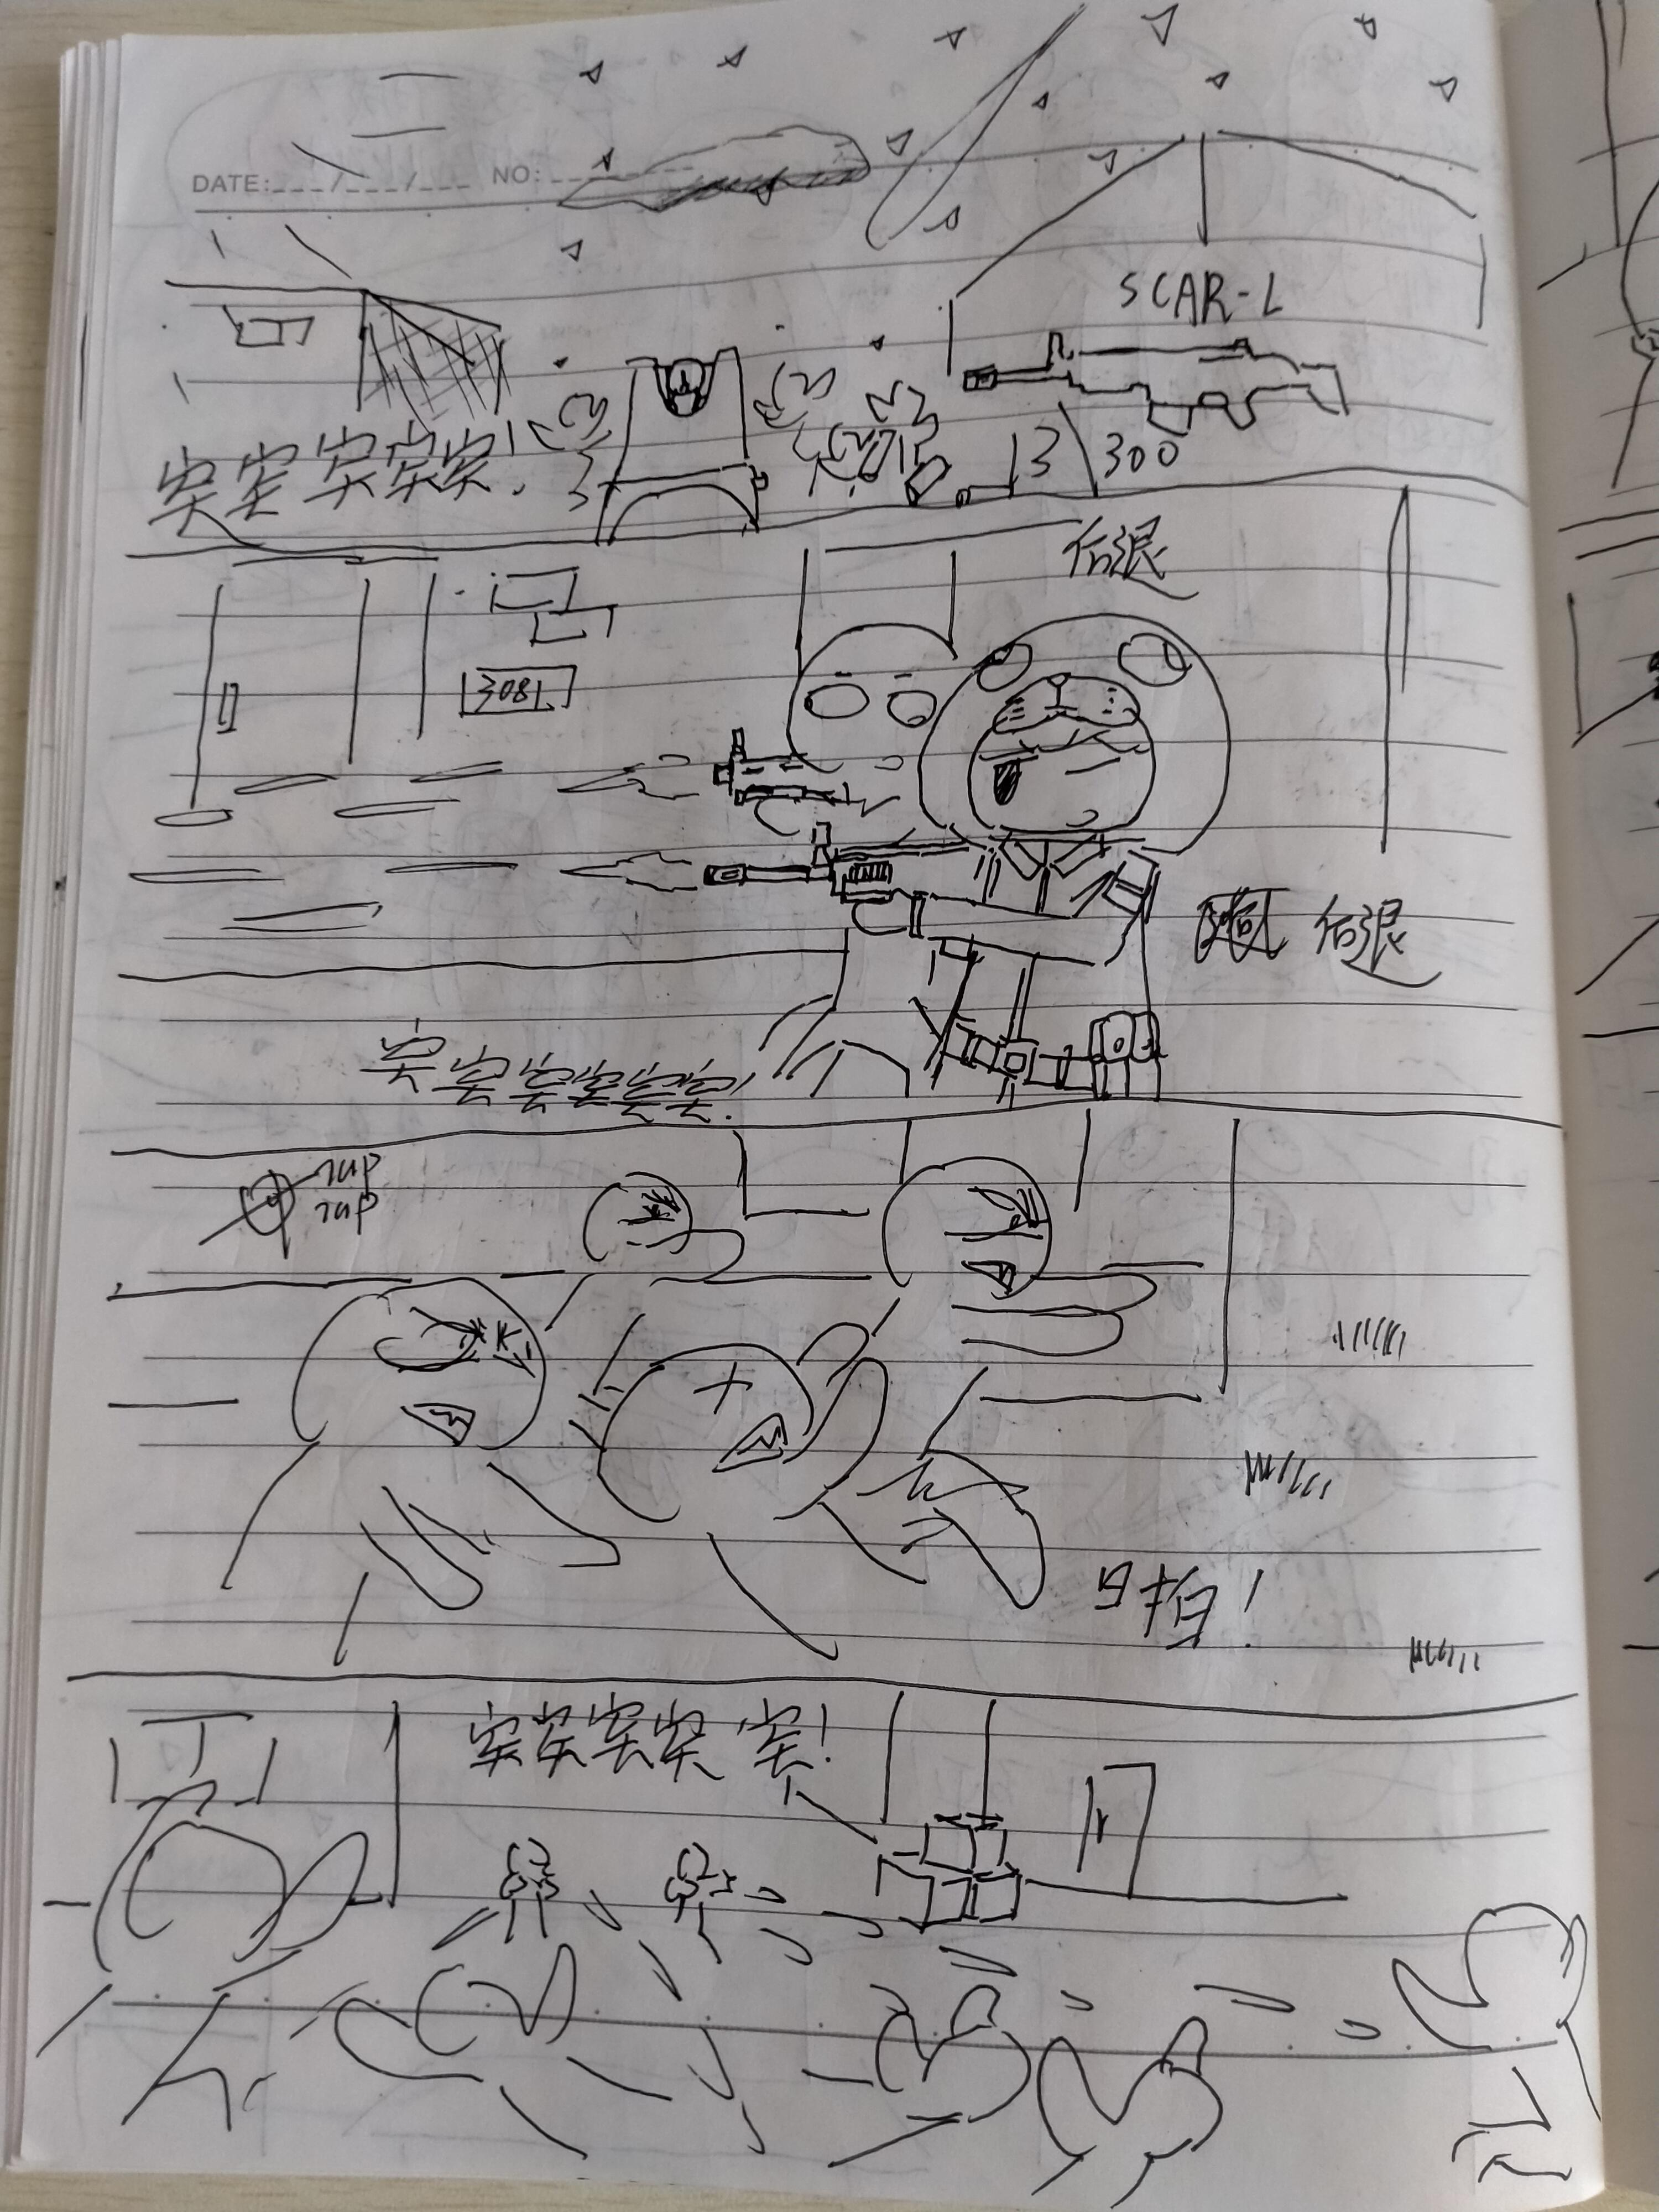 DATE:___/___/___ NO:______
SCAR-L
突突突突突!
13\300
后退
308L
后退
突突突突突突!
啪!
突突突突突!